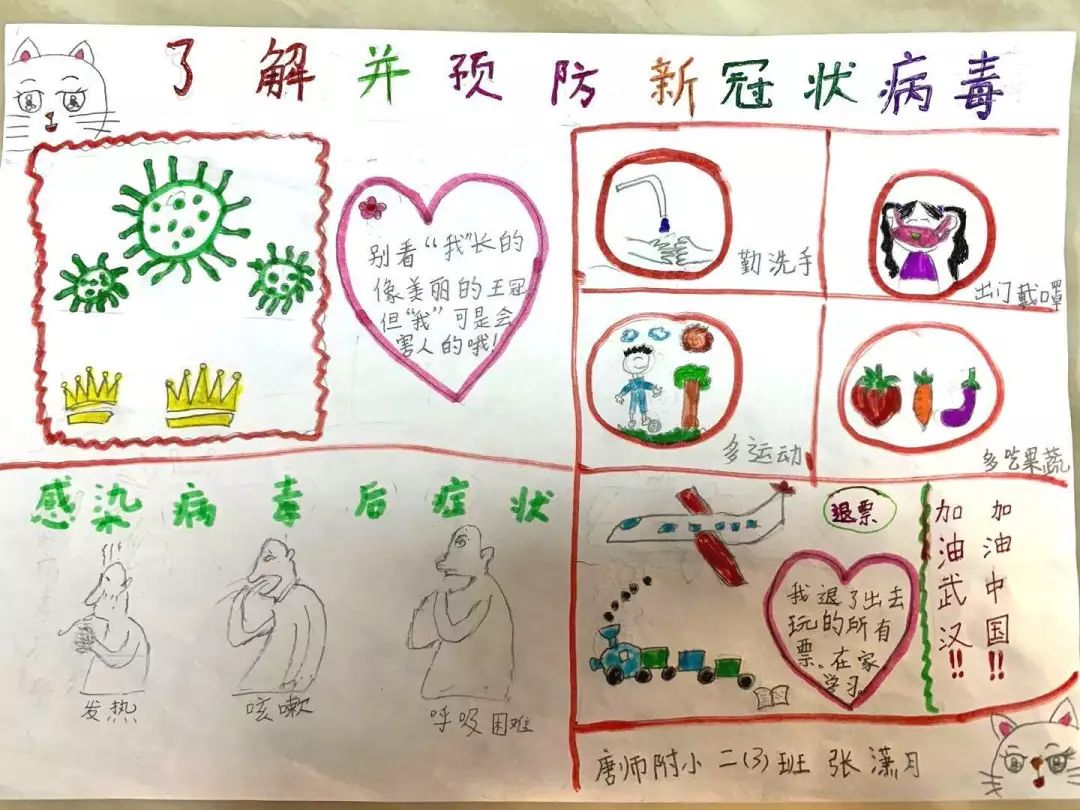 了解并预防新冠状病毒
别看“我”长的
像美丽的王冠
但“我”可是会
害人的哦!
勤洗手
出门戴口罩
多运动
多吃果蔬
感染病毒后症状
发热
咳嗽
呼吸困难
退票
我退了出去
玩的所有
票。在家
学习。
加油武汉!!
加油中国!!
唐师附小 二(3)班 张潇月